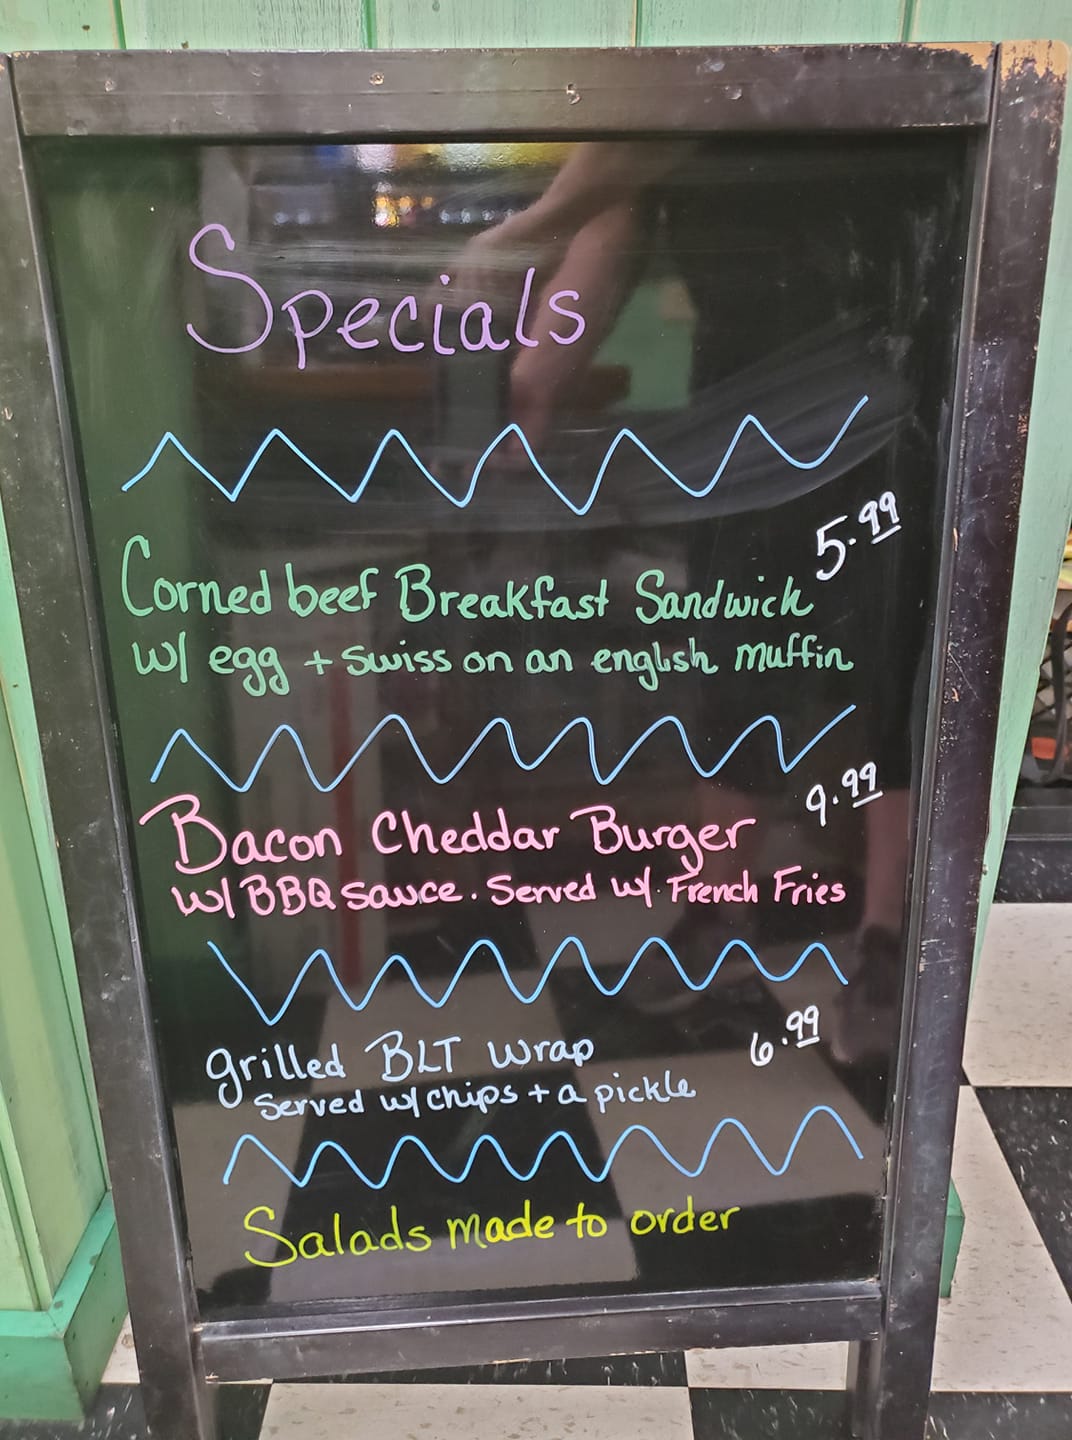 Specials
5.99
Corned beef Breakfast Sandwich
w/ egg + swiss on an english muffin
9.99
Bacon Cheddar Burger
w/ BBQ sauce. Served w/. French Fries
6.99
grilled BLT wrap
Served w/ chips + a pickle
Salads made to order